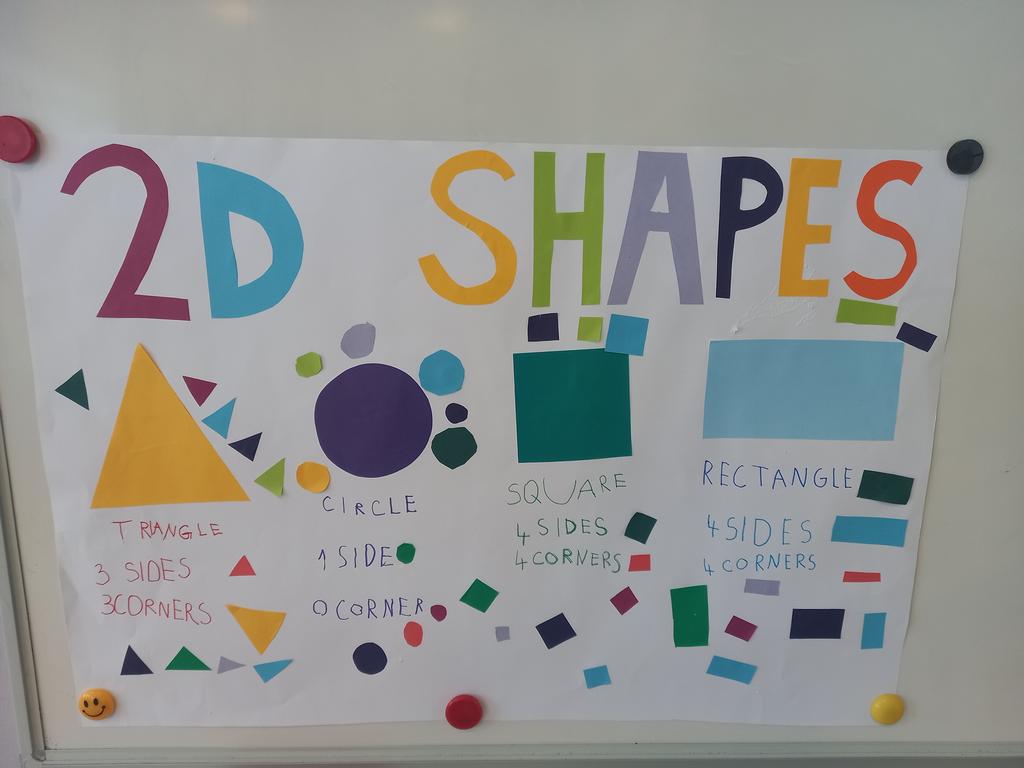 2D SHAPES
TRIANGLE
3 SIDES
3CORNERS
CIRCLE
1 SIDE
0 CORNER
SQUARE
4 SIDES
4 CORNERS
RECTANGLE
4 SIDES
4 CORNERS